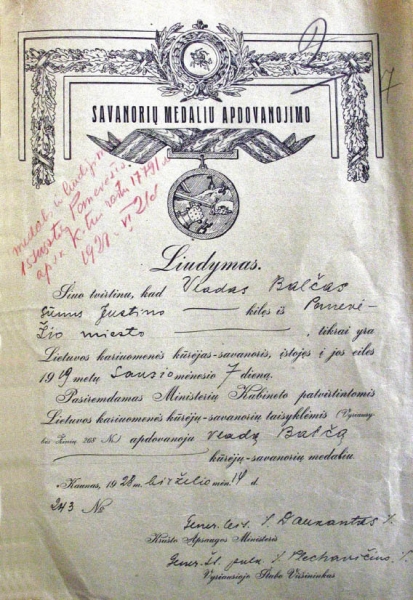 2
7
SAVANORIŲ MEDALIU APDOVANOJIMO
medal. ir liudij.
išsiųsta Panevėžio
1929 - VI - 21 d
Liudymas.
Šiuo tvirtinu, kad Vladas Balčas
sūnus Justino kilęs iš Panevė-
žio miesto, tikrai yra
Lietuvos kariuomenės kūrėjas-savanoris, įstojęs į jos eiles
1919 metų Sausio mėnesio 7 dieną.
Pasiremdamas Ministerių Kabineto patvirtintomis
Lietuvos kariuomenės kūrėjų-savanorių taisyklėmis (Vyriausy-
bės Žinių 268 №) apdovanoju Vladą Balčą
kūrėjų-savanorių medaliu.
Kaunas, 1928 m. birželio mėn. 14 d.
243 №
Gener. leit. Daukantas
Krašto Apsaugos Ministeris
Gener. št. pulk. Plechavičius
Vyriausiojo Štabo Viršininkas